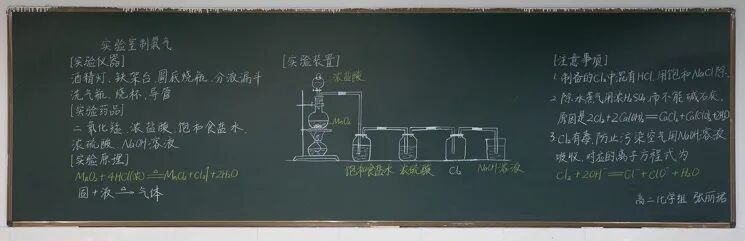 实验室制氯气
[实验仪器]
酒精灯、铁架台、圆底烧瓶、分液漏斗
洗气瓶、烧杯、导管
[实验药品]
二氧化锰、浓盐酸、饱和食盐水、
浓硫酸、NaOH溶液
[实验原理]
MnO₂+4HCl(浓)≜MnCl₂+Cl₂↑+2H₂O
固+液→气体
[实验装置]
浓盐酸
MnO₂
饱和食盐水 浓硫酸 Cl₂ NaOH溶液
[注意事项]
1.制备的Cl₂中混有HCl,用饱和NaCl除.
2.除水蒸气用浓H₂SO₄,而不能碱石灰,
原因是2Cl₂+2Ca(OH)₂=CaCl₂+Ca(ClO)₂+2H₂O
3.Cl₂有毒,防止污染空气用NaOH溶液
吸收,对应的离子方程式为
Cl₂+2OH⁻=Cl⁻+ClO⁻+H₂O
高二化学组 张丽珺